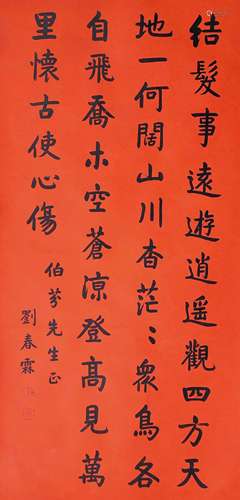 結髮事遠遊逍遥觀四方天
地一何闊山川杳茫〻衆鳥各
自飛喬木空蒼凉登高見萬
里懷古使心傷
伯芬先生正
劉春霖